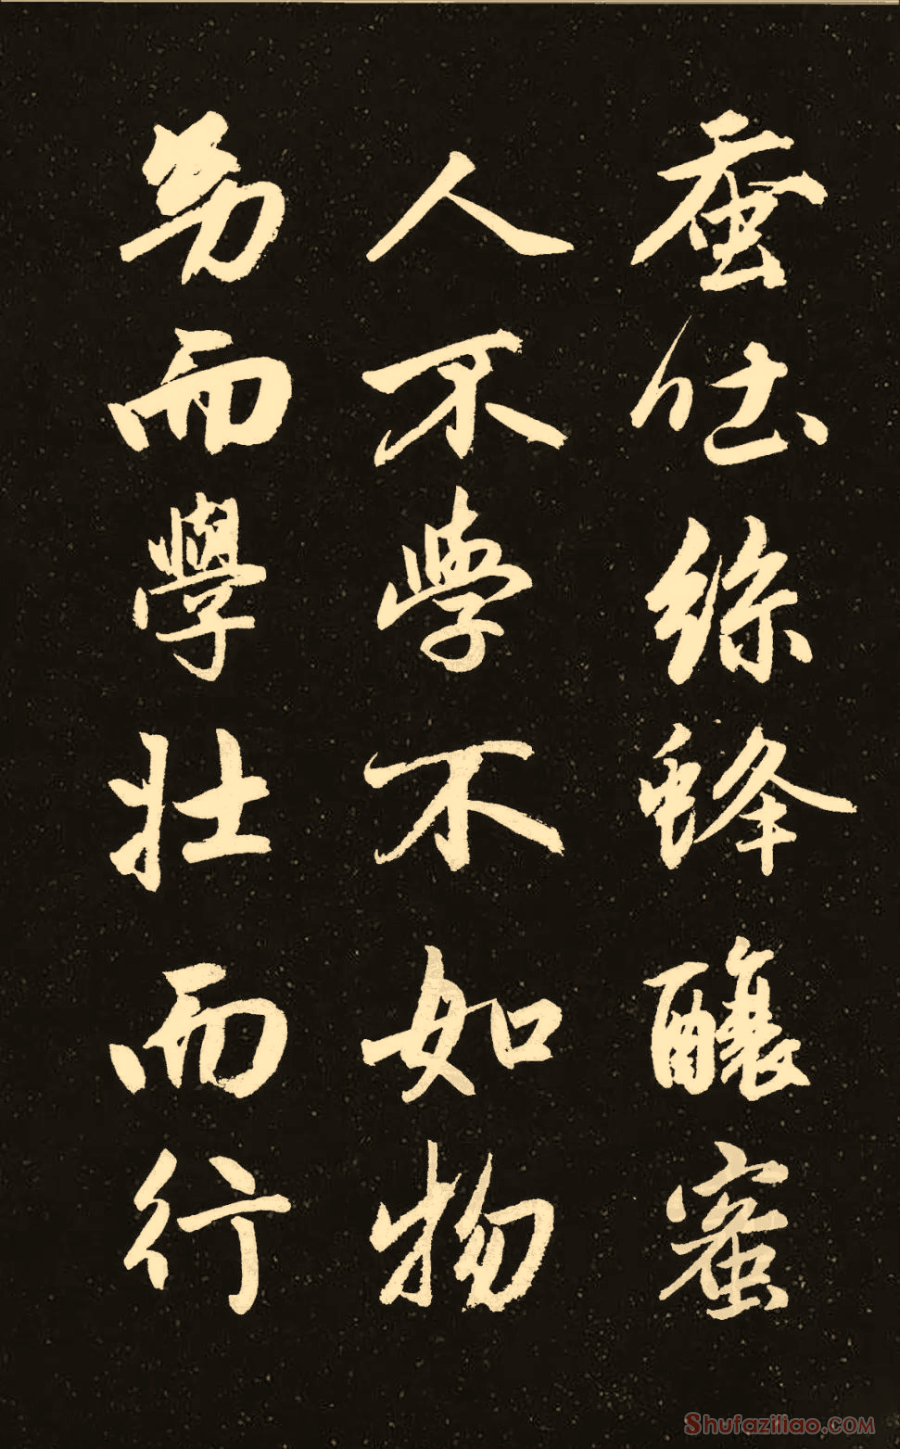 蚕吐絲蜂釀蜜
人不學不如物
幼而學壯而行
Shufaziliao.com